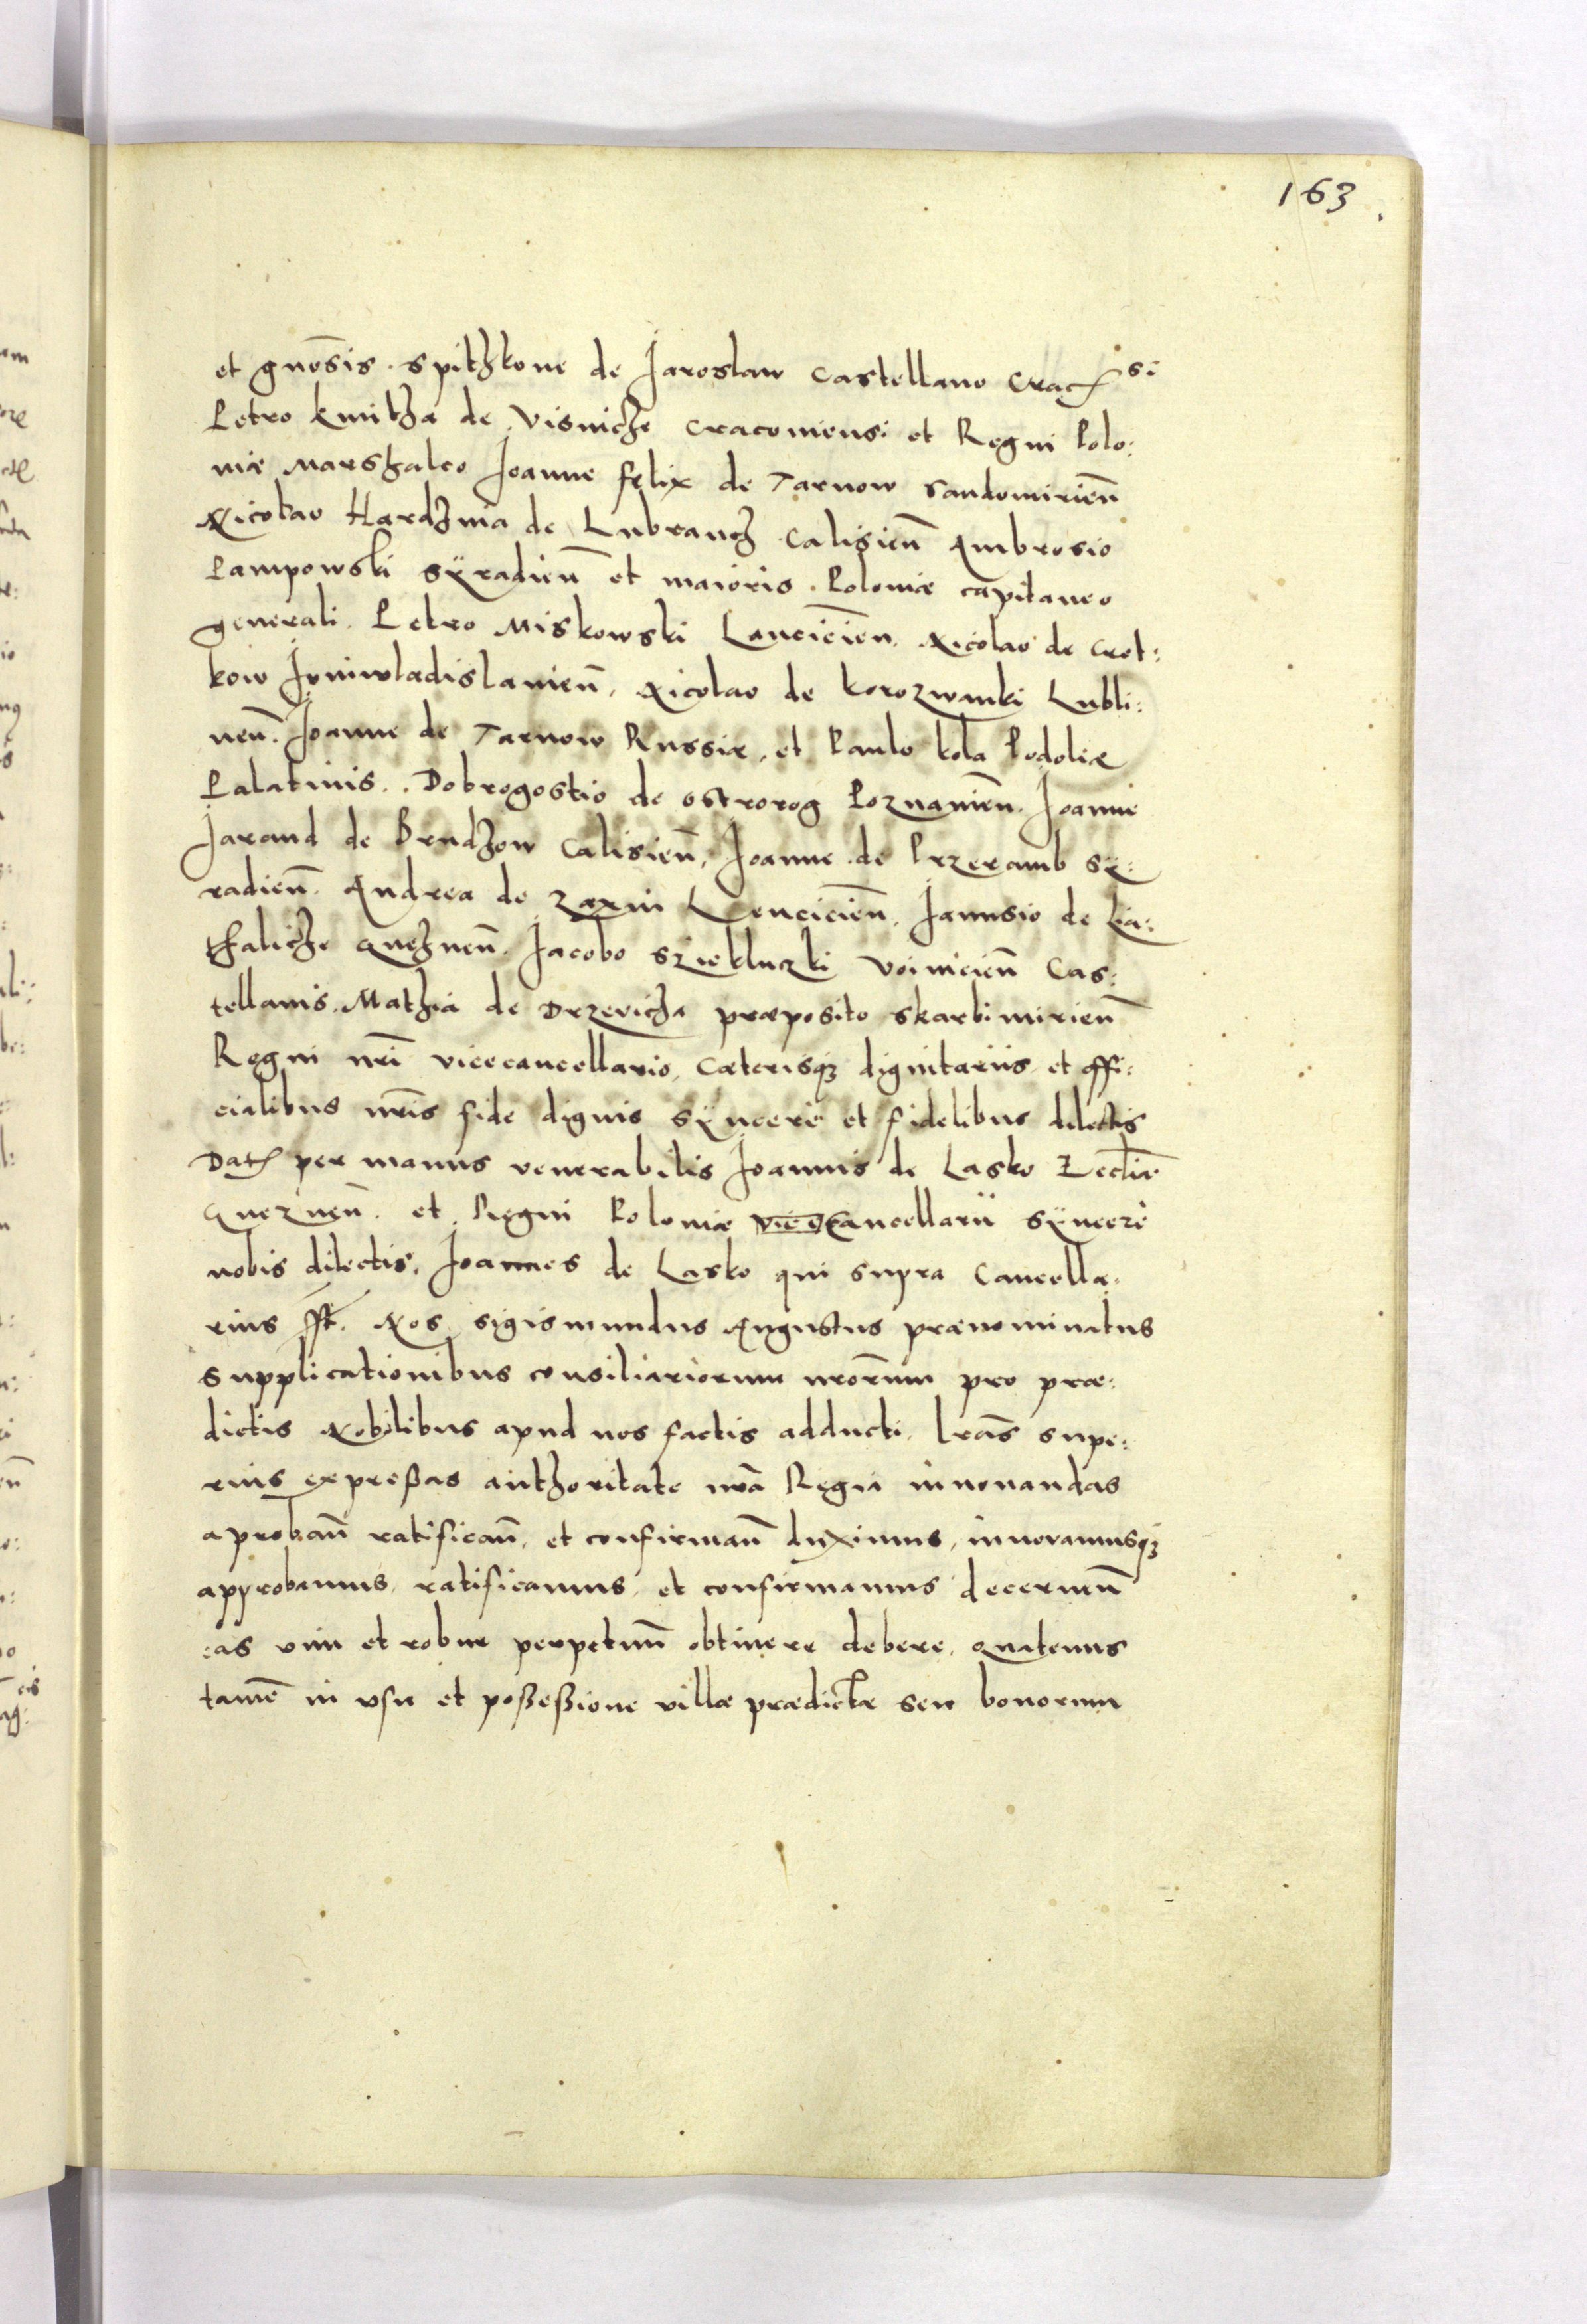 163
et gnosis. Spithkone de Jaroslaw Castellano Crac si
Petro Kmitha de Visniche Cracoviensi et Regni Polo:
niæ Marshalco Joanne Felix de Tarnow Sandomirien̄
Nicolao Hardzina de Lubrancz Calisien̄ Ambrosio
Pampowski Syradien̄ et maioris Poloniæ capitaneo
generali. Petro Miskowski Lancicien. Nicolao de Crot:
kow Juniwladislavien̄, Nicolao de Korozwanki Lubli:
nen̄. Joanne de Tarnow Russiæ, et Paulo Kola Podoliæ
Palatinis. Dobrogostio de Ostrorog Poznanien̄. Joanne
Jarand de Brudzow Calisien̄, Joanne de Przeramb Sy:
radien̄. Andrea de Lencicien̄. Janusio de Lia:
thaliche Gneznen̄. Jacobo Sziekluczki Voinicien̄ Cas:
tellanis. Mathia de Drzevicza præposito Skarbimirien̄
Regni nr̄i vicecancellario, cæterisq3 dignitariis et offi:
cialibus nr̄is fide dignis syncere et fidelibus dilectis
Dat per manus venerabilis Joannis de Lasko Eccl̄iæ
Gneznen̄. et Regni Poloniæ Cancellarii syncere
nobis dilectis, Joannes de Lasko qui supra Cancella:
rius sst. Nos Sigismundus Augustus prænominatus
supplicationibus consiliariorum nror̄um pro præ:
dictis Nobilibus apud nos factis adducti, lr̄as supe:
rius expreßas authoritate nr̄a Regia innovandas
aproban̄ ratifican̄, et confirman̄ duximus, innovamusq3
approbamus, ratificamus, et confirmamus decernen̄
eas vim et robur perpetuum obtinere debere, quatenus
tame͞ in usu et poßeßione villæ prædictæ seu bonorum